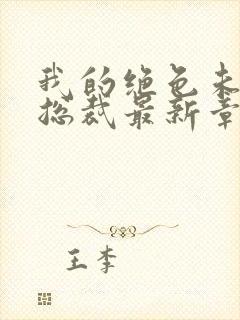 我的绝色未
总裁最新章
王李